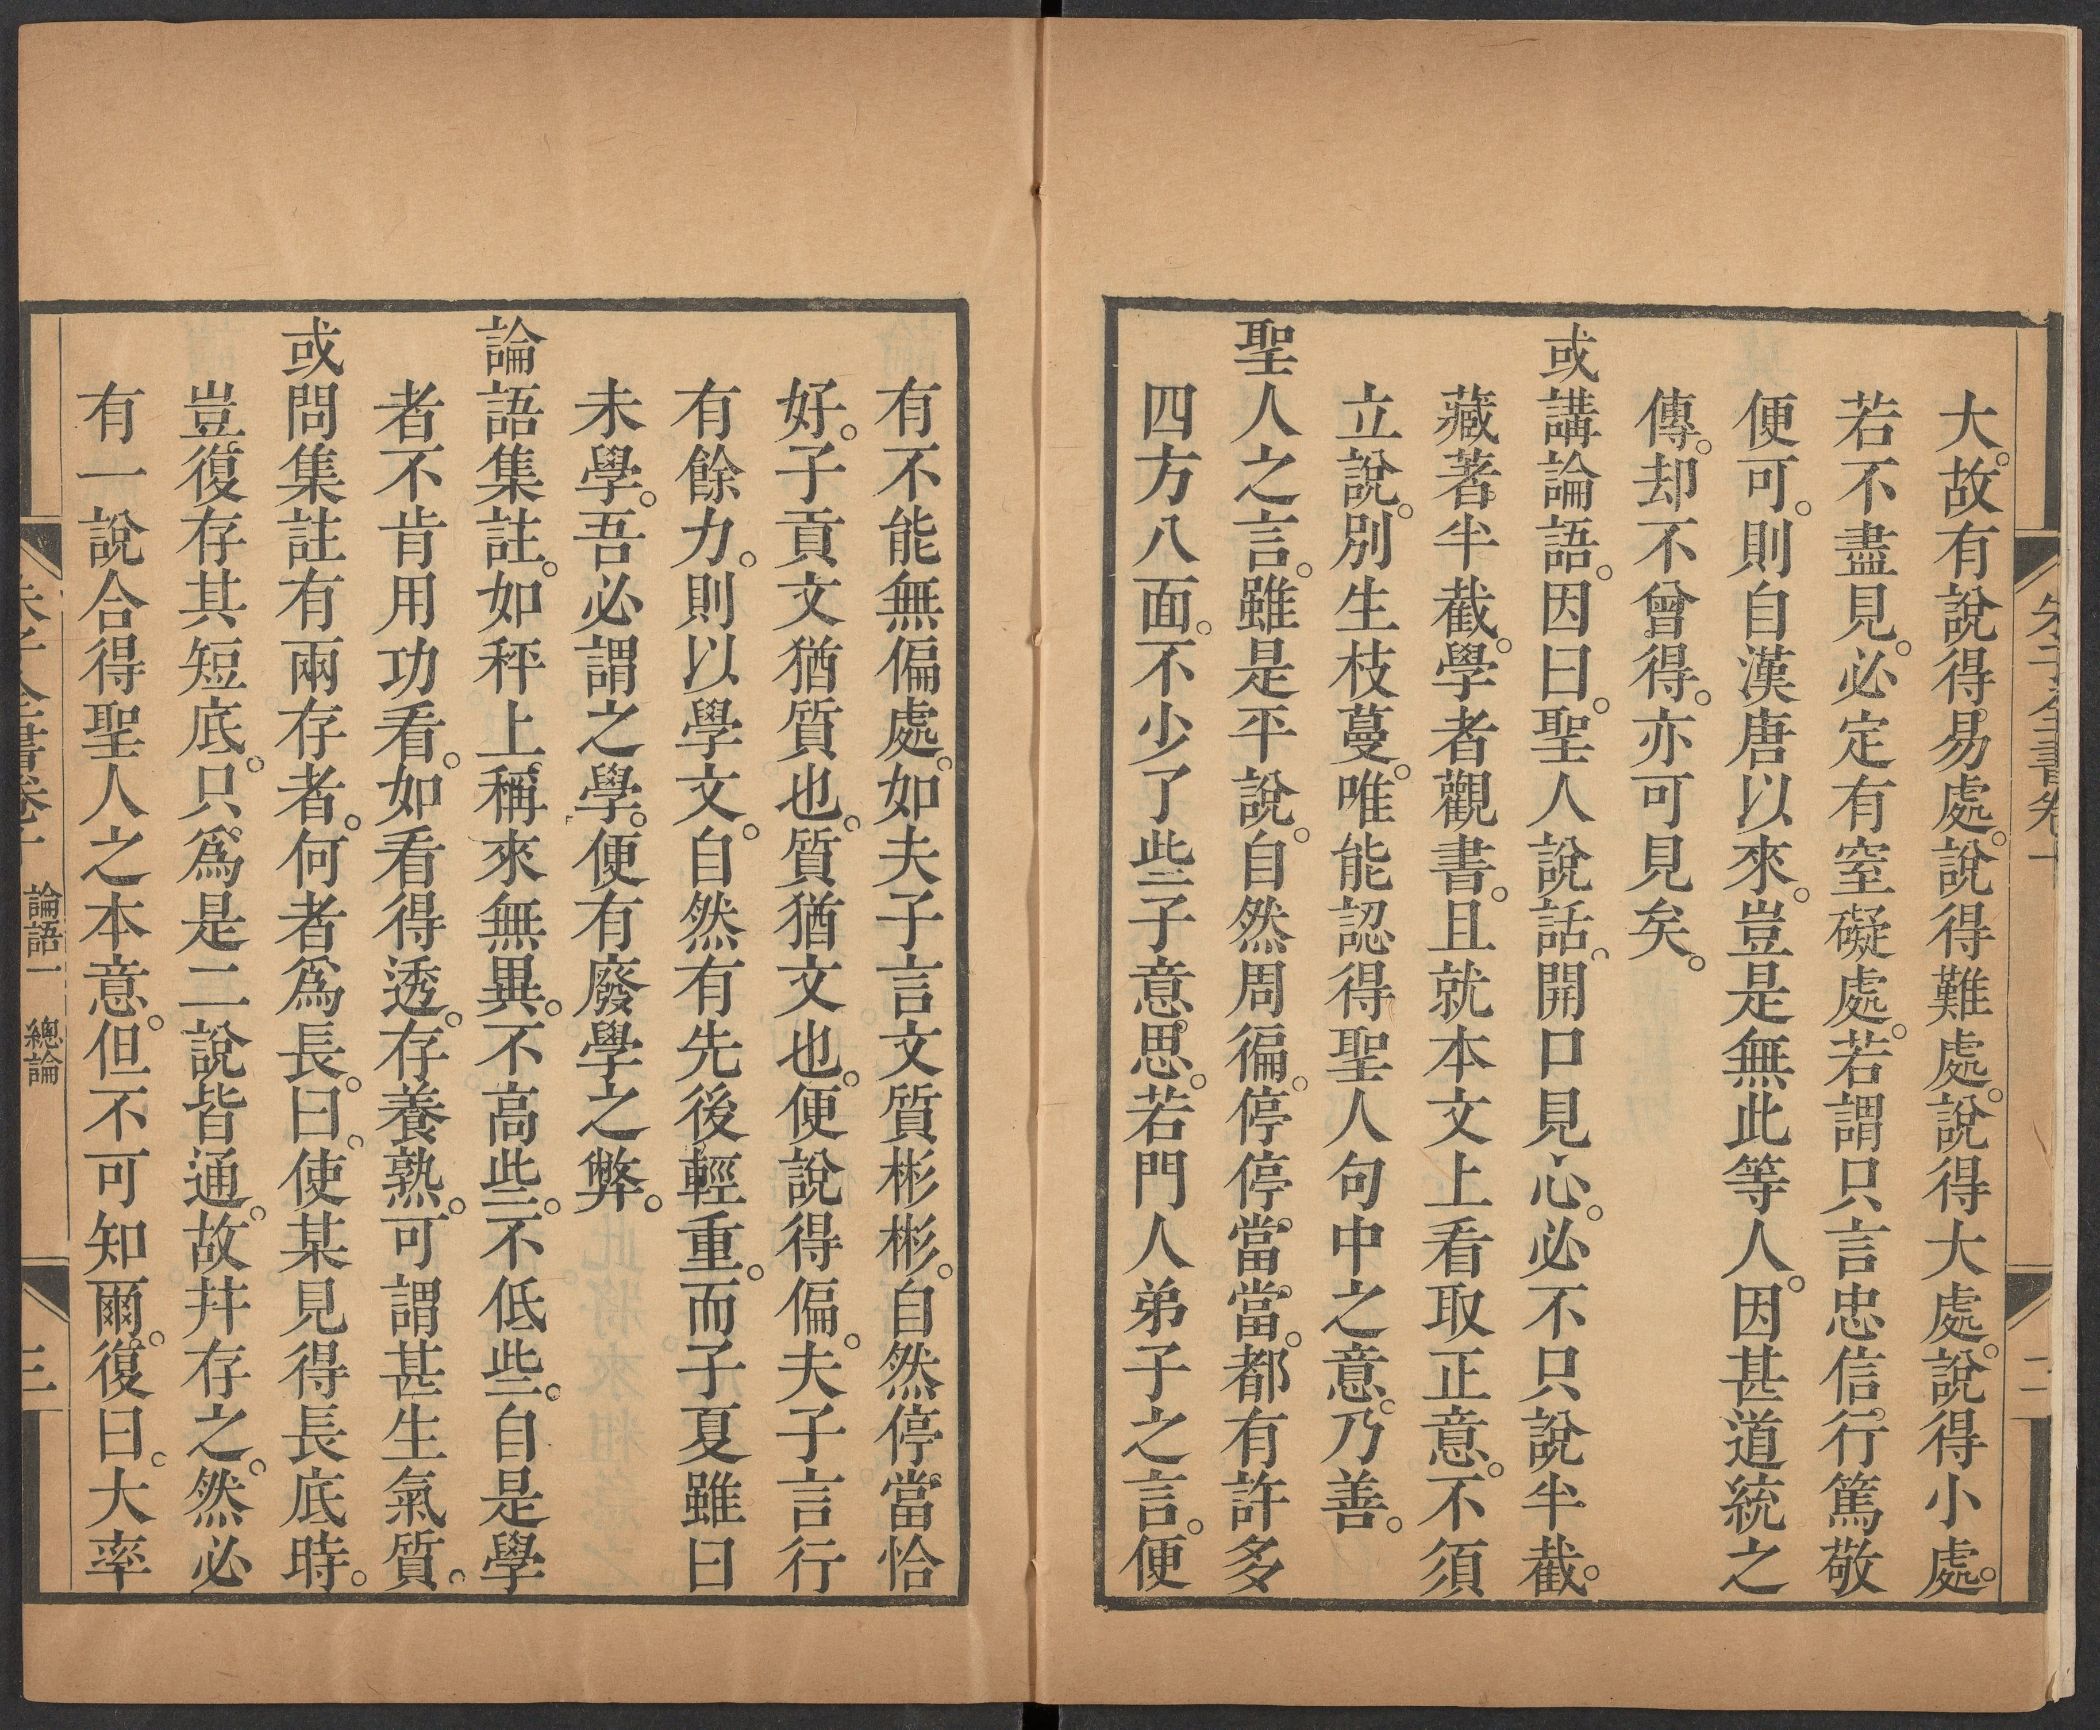 朱子全書卷十
二
大。故有說得易處。說得難處。說得大處。說得小處。
若不盡見。必定有窒礙處。若謂只言忠信。行篤敬
便可。則自漢唐以來。豈是無此等人。因甚道統之
傳。却不曾得。亦可見矣。
或講論語。因曰。聖人說話。開口見心。必不只說半截。
藏著半截。學者觀書。且就本文上看取正意。不須
立說。別生枝蔓。唯能認得聖人句中之意。乃善。
聖人之言。雖是平說。自然周徧。停停當當。都有許多
四方八面。不少了些子意思。若門人弟子之言。便
有不能無偏處。如夫子言文質彬彬。自然停當恰
好。子貢文猶質也。質猶文也。便說得偏。夫子言行
有餘力。則以學文。自然有先後輕重。而子夏雖曰
未學。吾必謂之學。便有廢學之弊。
論語集註。如秤上稱來無異。不高些。不低些。自是學
者不肯用功看。如看得透。存養熟。可謂甚生氣質。
或問集註有兩存者。何者爲長。曰。使某見得長底時。
豈復存其短底。只爲是二說皆通。故幷存之。然必
有一說合得聖人之本意。但不可知爾。復曰。大率
朱子全書卷十 論語一 總論
三